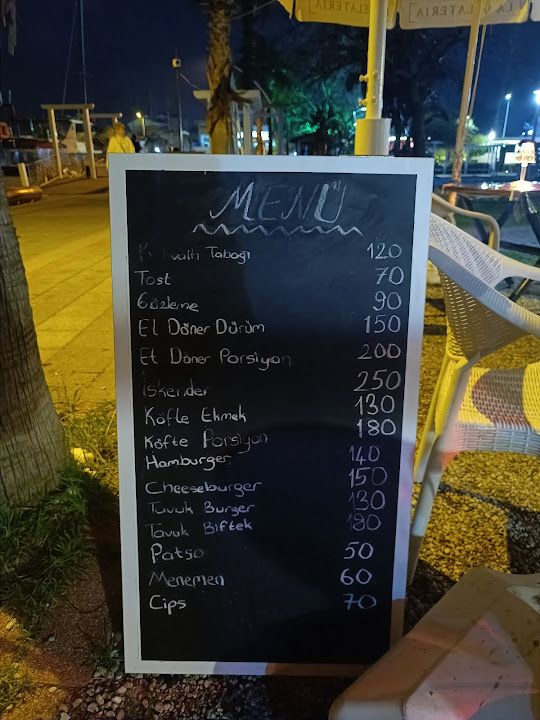 ELATERIA
LA GELATERIA
MENÜ
Kahvaltı Tabagı 120
Tost 70
Gözleme 90
El Döner Dürüm 150
Et Döner Porsiyon 200
İskender 250
Köfte Ekmek 130
Köfte Porsiyon 180
Hamburger 140
Cheeseburger 150
Tavuk Burger 130
Tavuk Biftek 180
Patso 50
Menemen 60
Cips 70